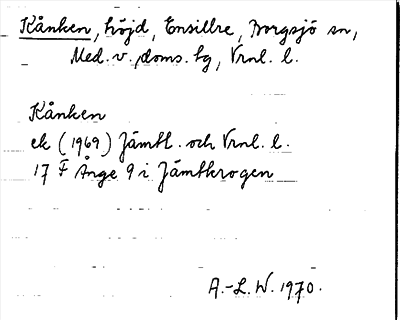 Kånken, höjd, Ensillre, Borgsjö sn,
Med. v. doms. tg, Vrnl. l.
Kånken
ek (1969) Jämtl. och Vrnl. l.
17 F Ånge 9 i Jämtkrogen
A.-L. W. 1970.